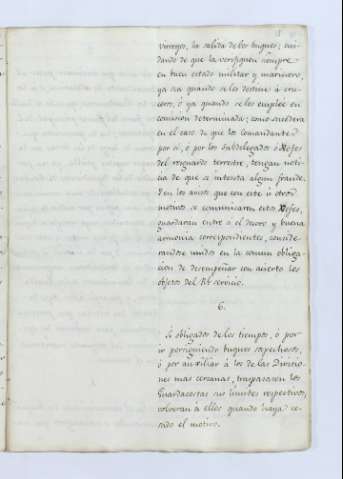 virreyes, la salida de los buques; cui-
dando de que la verifiquen siempre
en buen estado militar y marinero,
ya sea quando se les destine à cru-
ceros, ó ya quando se les emplée en
comision determinada; como sucederà
en el caso de que los Comandantes
por si, ó por los Subdelegados ó Xefes
del resguardo terrestre, tengan noti-
cia de que se intenta algun fraude.
Y en los avisos que con este ù otros
motivos se comunicaren estos Xefes,
guardaran entre sí el decoro y buena
armonia correspondientes, conside-
randose unidos en la comun obliga-
cion de desempeñar con acierto los
objetos del Rl servicio.
6.
Si obligados de los tiempos, ó por
ir persiguiendo buques sospechosos,
ó por auxiliar à los de las Divisio-
nes mas cercanas, traspasaren los
Guardacostas sus limites respectivos,
volveran à ellos quando haya ce-
sado el motivo.